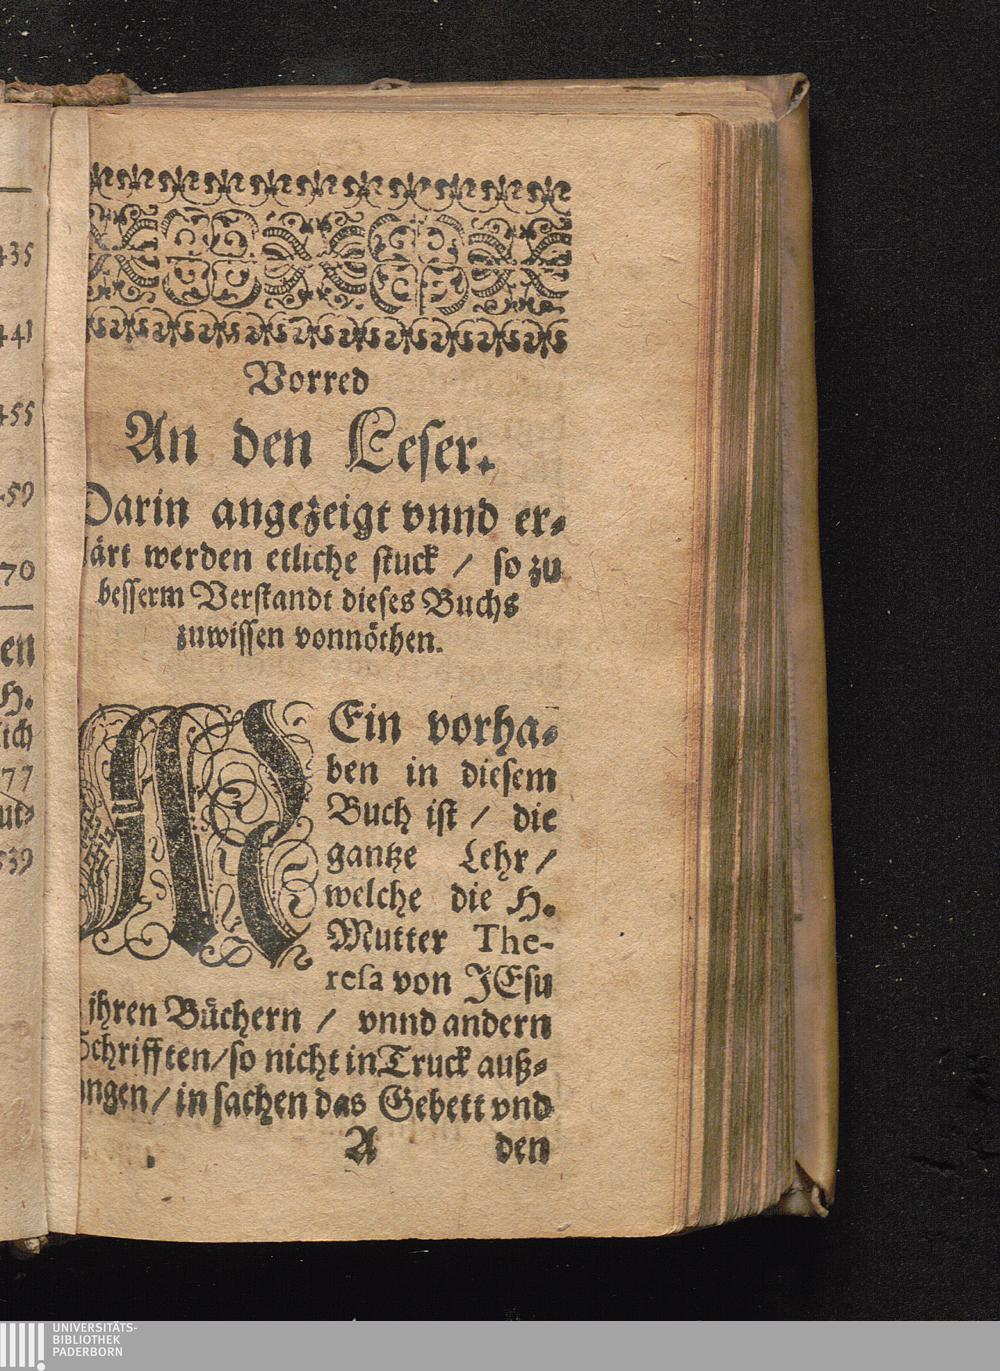 435
441
455
459
70
en
H.
lich
77
ut⸗
539
Vorred
An den Leser.
Darin angezeigt vnnd er⸗
lärt werden etliche stuck / so zu
besserm Verstandt dieses Buchs
zuwissen vonnöthen.
MEin vorha⸗
ben in diesem
Buch ist / die
gantze Lehr /
welche die H.
Mutter The-
resa von JEsu
ihren Büchern / vnnd andern
Schrifften / so nicht in Truck auß⸗
angen / in sachen das Gebett vnd
A den
UNIVERSITÄTS-
BIBLIOTHEK
PADERBORN